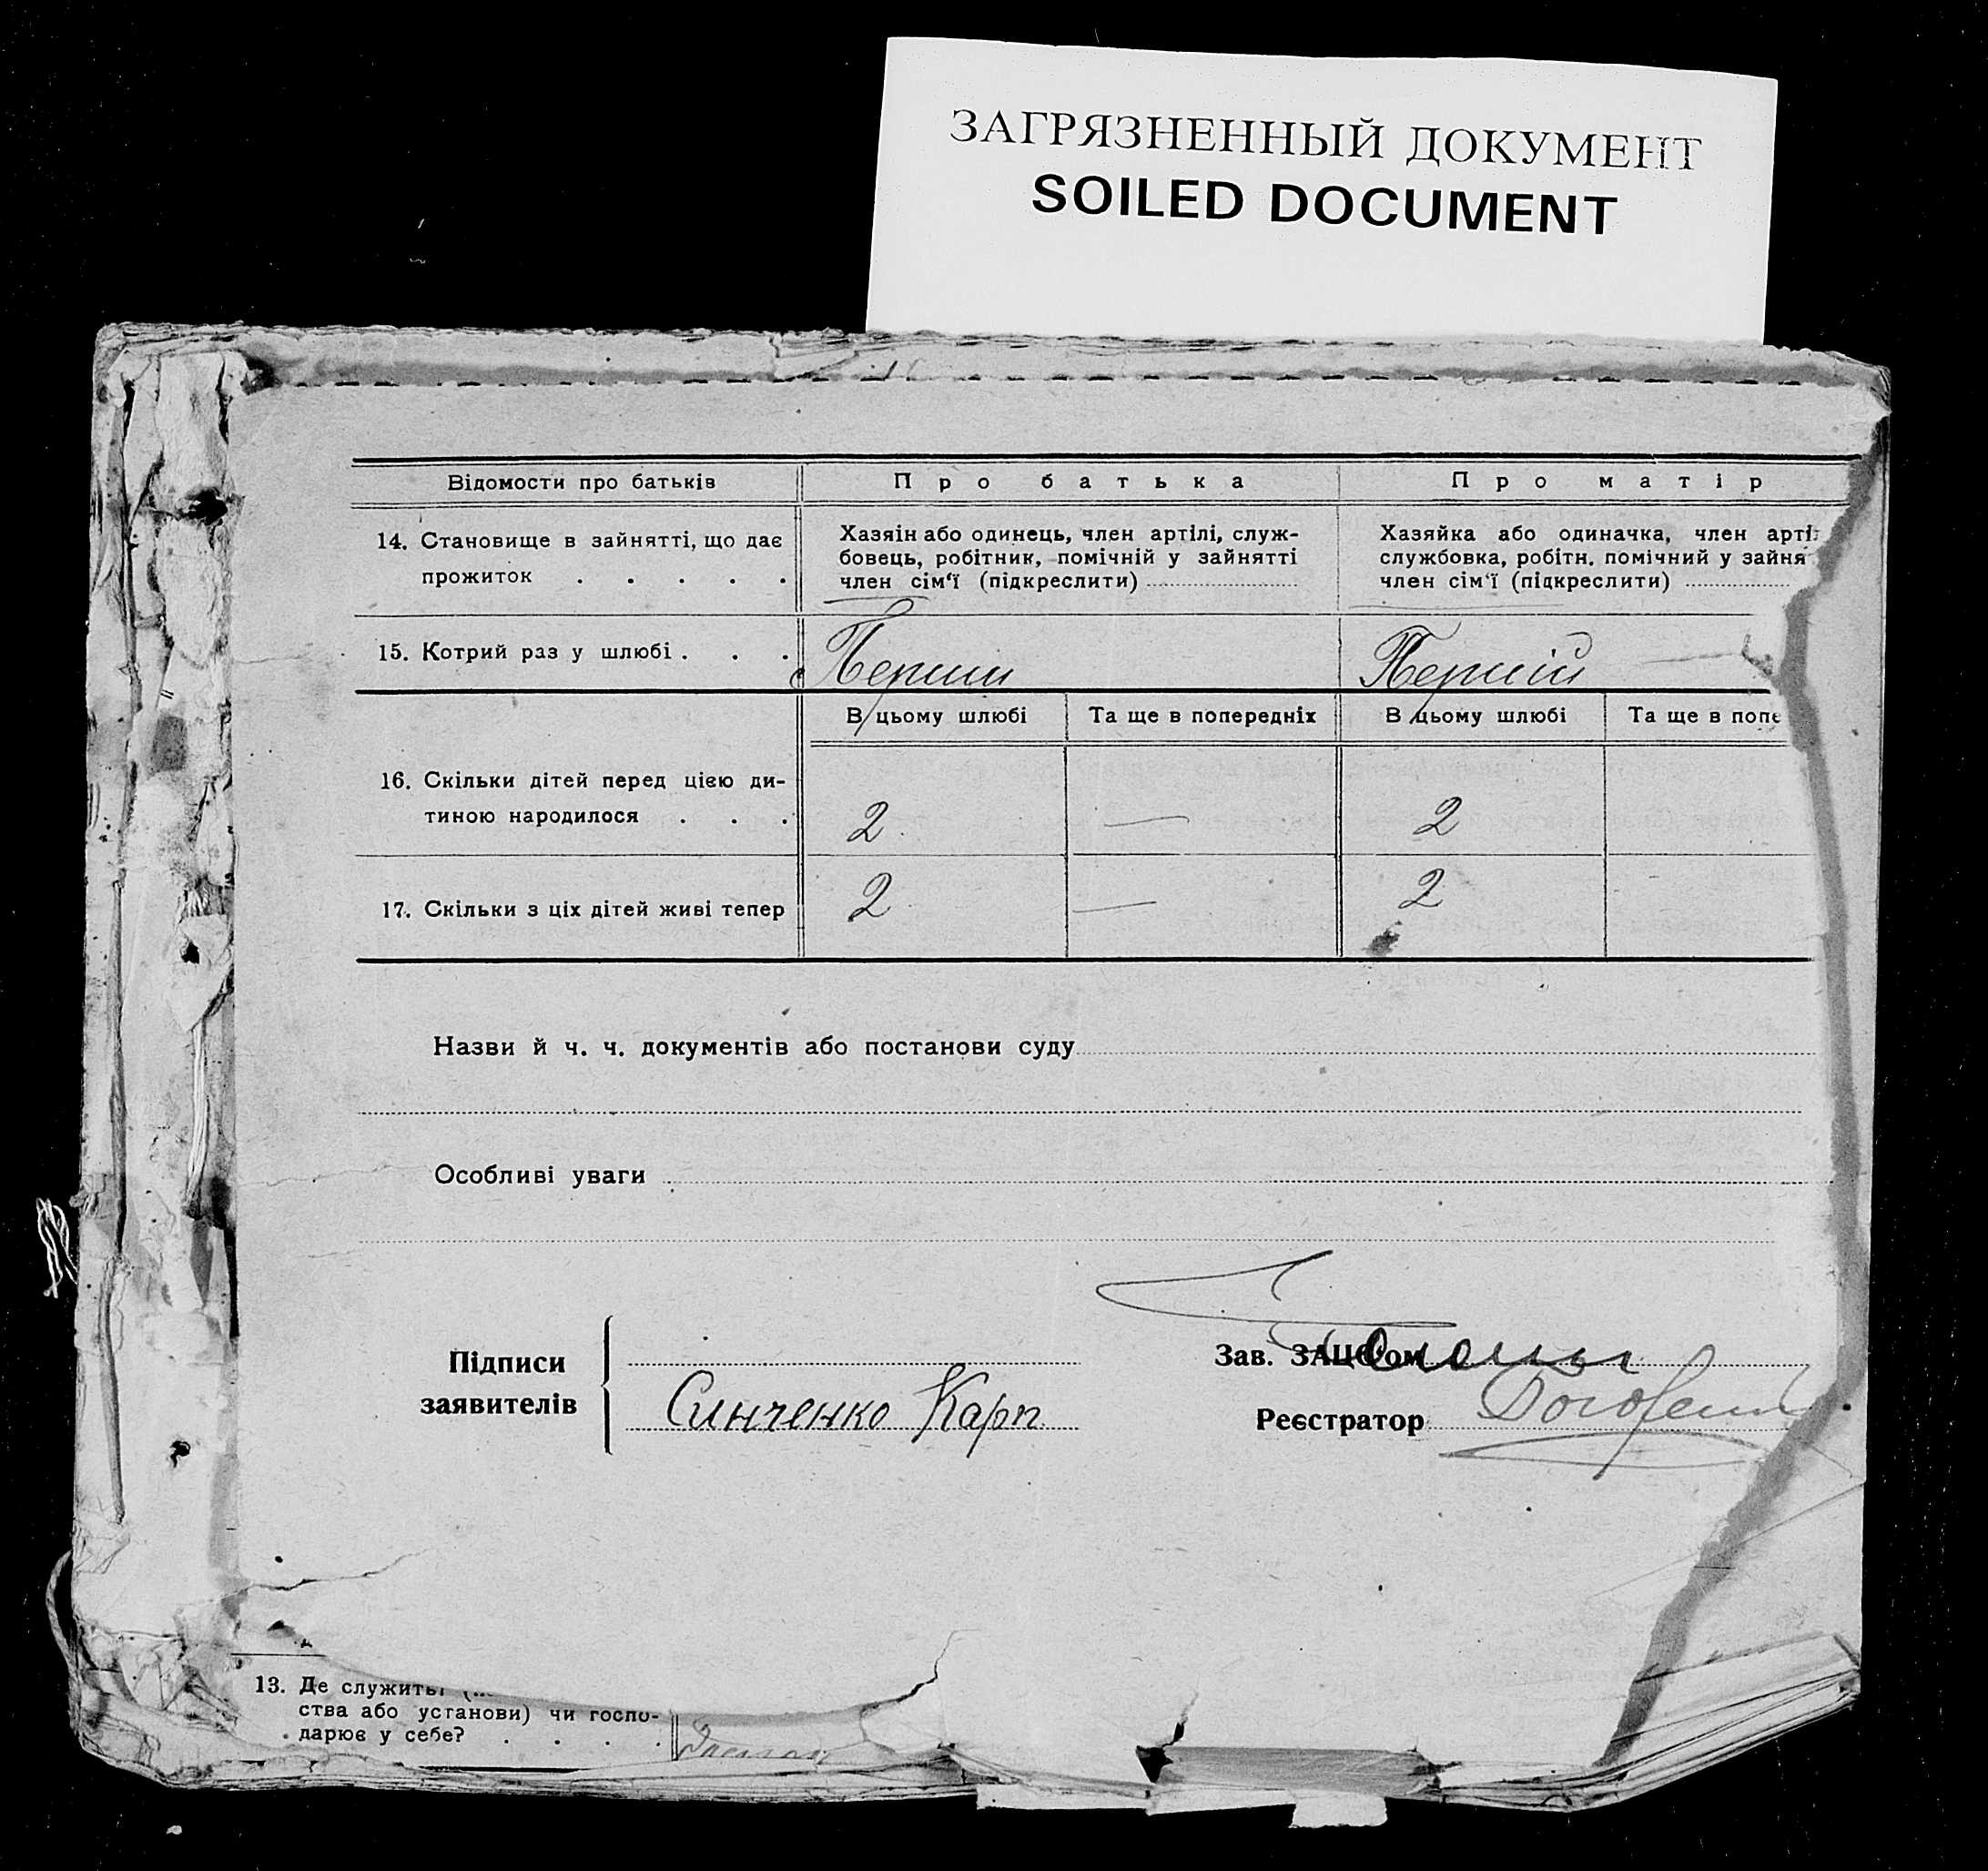 ЗАГРЯЗНЕННЫЙ ДОКУМЕНТ
SOILED DOCUMENT
Відомости про батьків
Про батька
Про матір
14. Становище в зайнятті, що дає
прожиток . . . . .
Хазяін або одинець, член артілі, служ-
бовець, робітник, помічній у зайнятті
член сім‘ї (підкреслити)
Хазяйка або одиначка, член арті
службовка, робітн. помічний у зайня
член сім‘ї (підкреслити)
15. Котрий раз у шлюбі . . .
Перший
Перший
В цьому шлюбі
Та ще в попередніх
В цьому шлюбі
Та ще в попе
16. Скільки дітей перед цією ди-
тиною народилося . . .
2 —
2
17. Скільки з ціх дітей живі тепер
2 —
2
Назви й ч. ч. документів або постанови суду
Особливі уваги
Підписи
заявителів
Синченко Карп
Зав. ЗАЦС‘ом
Реєстратор
13. Де служить
ства або установи) чи госпо-
дарює у себе? . . . .